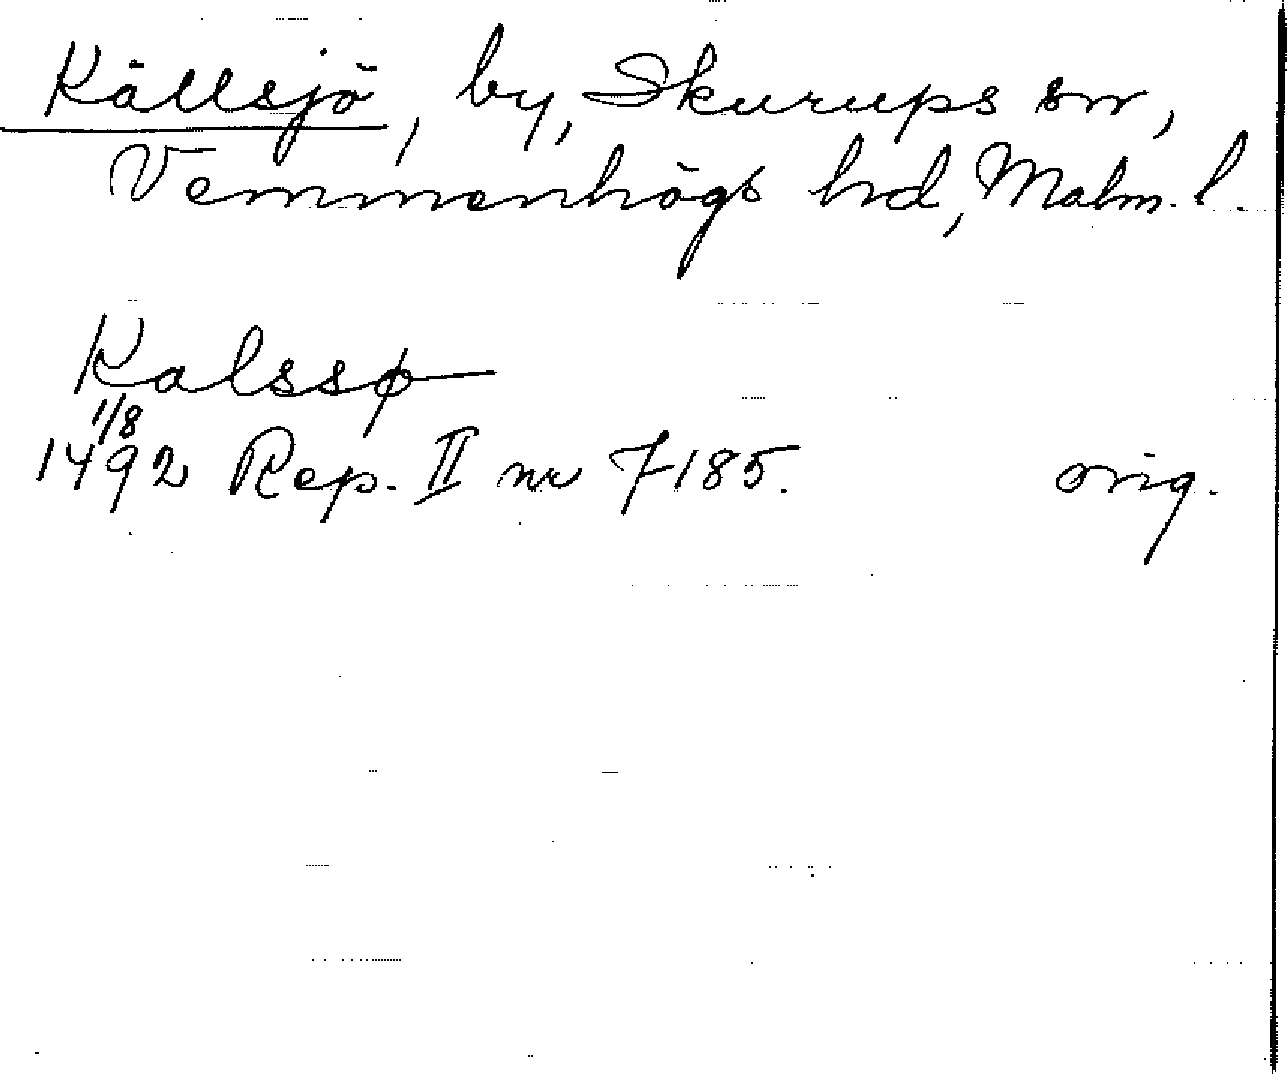 Källsjö, by, Skurups sn,
Vemmenhögs hd, Malm. l.
Kalssø
1/8
1492 Rep. II nr 7185. orig.